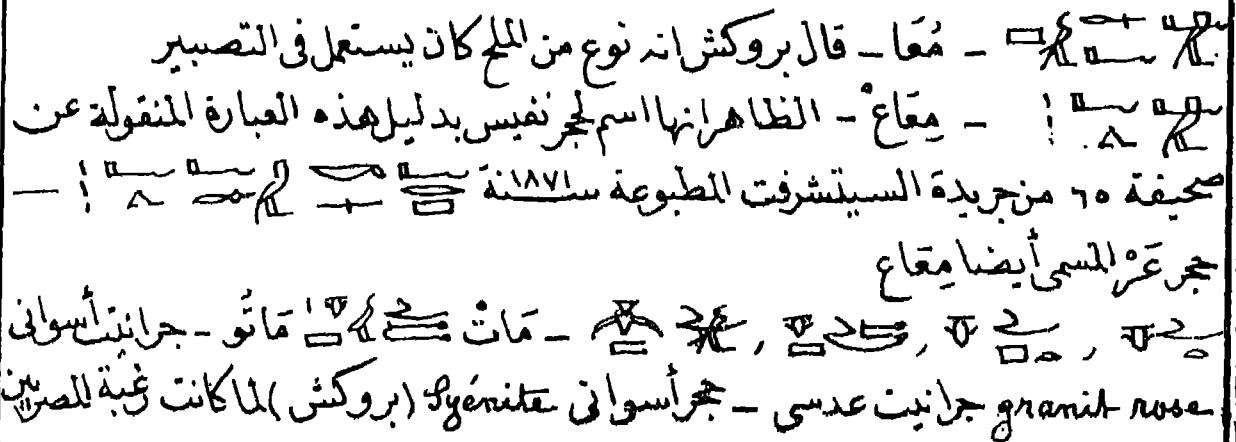 ـ مُعَا ـ قال بروكش انه نوع من الملح كان يستعمل فى التصبير
ـ مِعَاعْ ـ الظاهر انها اسم لحجر نفيس بدليل هذه العبارة المنقولة عن
صحيفة ٦٥ من جريدة السيتشرفت المطبوعة سنة ١٨٧١ —
حجر عَرْ المسمى أيضا مِعَاع
ـ مَاتْ مَاتُو ـ جرانيت أسوانى
granit rose جرانيت عدسى ـ حجر أسوانى Syénite (بروكش) لما كانت رغبة المصريين